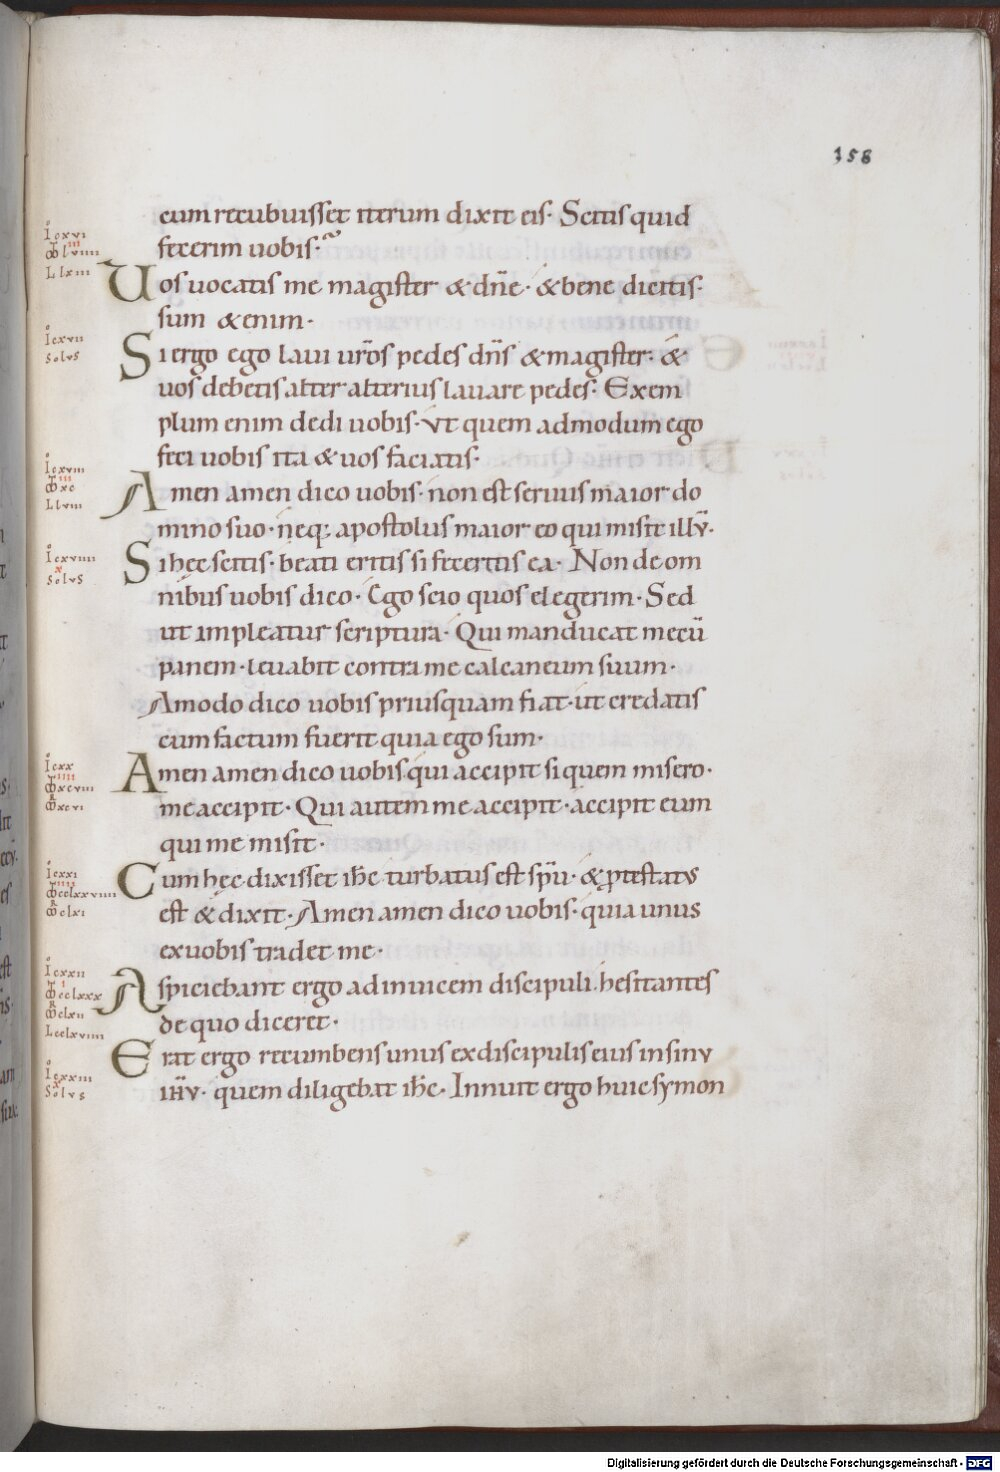 158
cum recubuisset iterum dixit eis· Scitis quid
fecerim uobis·
Uos uocatis me magister & dn̄e· & bene dicitis·
sum & enim·
Si ergo ego laui ur̄os pedes dn̄s & magister· &
uos debetis alter alterius lauare pedes· Exem
plum enim dedi uobis· ut quem admodum ego
feci uobis ita & uos faciatis·
Amen amen dico uobis· non est seruus maior do
mino suo· neq; apostolus maior eo qui misit illū·
Si hęc scitis· beati eritis si feceritis ea· Non de om
nibus uobis dico· Ego scio quos elegerim· Sed
ut impleatur scriptura· Qui manducat mecū
panem· leuabit contra me calcaneum suum·
Amodo dico uobis priusquam fiat· ut credatis
cum factum fuerit quia ego sum·
Amen amen dico uobis· qui accipit si quem misero·
me accipit· Qui autem me accipit· accipit eum
qui me misit·
Cum hęc dixisset ih̄c turbatus est spū· & ꝓtestatus
est & dixit· Amen amen dico uobis· quia unus
ex uobis tradet me·
Aspiciebant ergo ad inuicem discipuli· hesitantes
de quo diceret·
Erat ergo recumbens unus ex discipulis eius in sinu
ih̄u· quem diligebat ih̄c· Innuit ergo huic symon
Io cxvi
Io cxvii
solus
Io cxviii
L lviii
Io cxviiii
solus
Io cxx
Io cxxi
Io cxxii
Io cxxiii
Solus
Digitalisierung gefördert durch die Deutsche Forschungsgemeinschaft - DFG